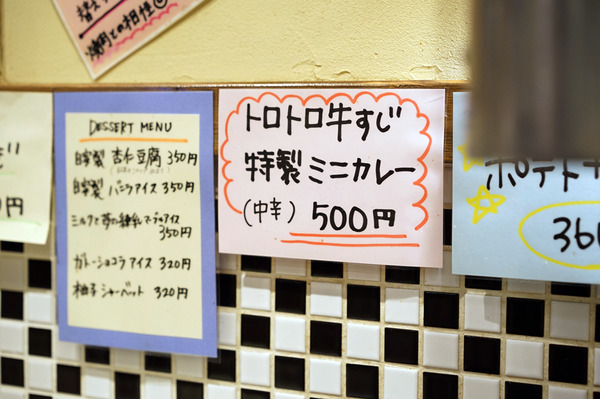 替え
焼肉との相性
DESSERT MENU
自家製 杏仁豆腐 350円
自家製 バニラアイス 350円
350円
ガトーショコラ アイス 320円
柚子シャーベット 320円
トロトロ牛すじ
特製ミニカレー
(中辛) 500円
ポテト
360
円